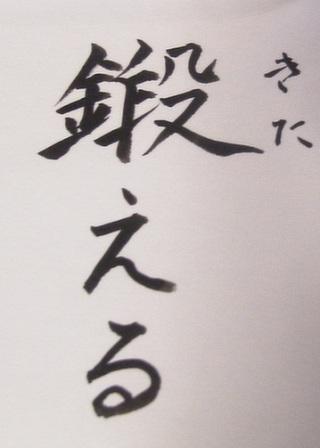 きた
鍛える